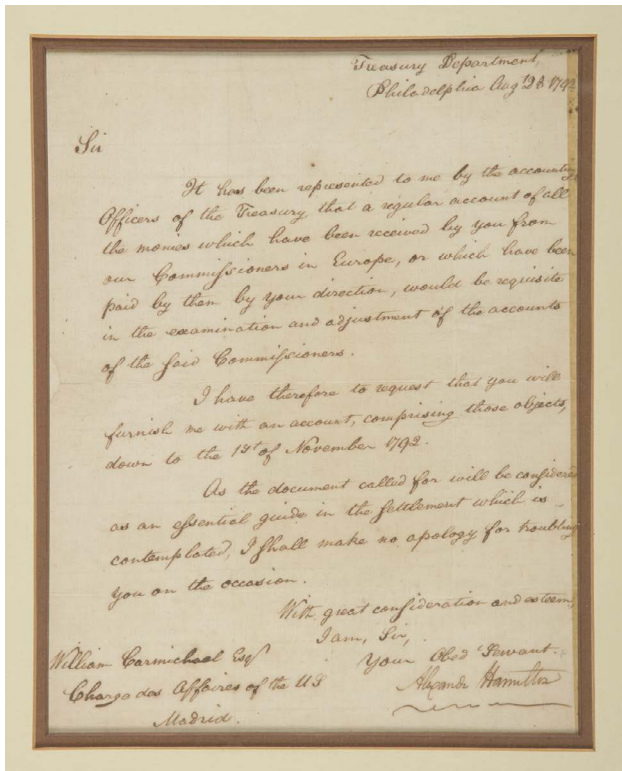 Treasury Department,
Philadelphia Augt 28 1792
Sir
It has been represented to me by the accounting
Officers of the Treasury, that a regular account of all
the monies which have been received by you from
our Commissioners in Europe, or which have been
paid by them by your direction, would be requisite
in the examination and adjustment of the accounts
of the said Commissioners.
I have therefore to request that you will
furnish me with an account, comprising those objects,
down to the 1st of November 1792.
As the document called for will be considered
as an essential guide in the settlement which is
contemplated, I shall make no apology for troubling
you on the occasion.
With great consideration and esteem,
I am, Sir,
Your Obed Servant.
William Carmichael Esqr
Alexandr Hamilton
Charge das Affaires of the US
Madrid.